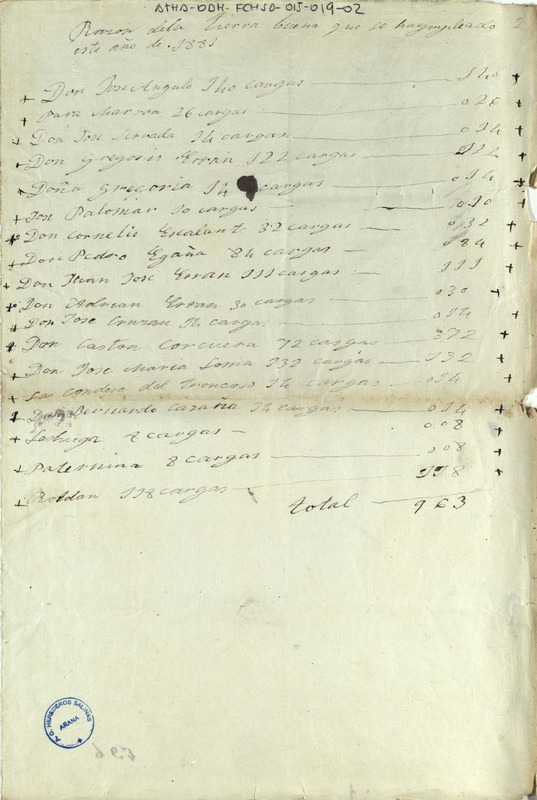 ATHA-DDH-FCHSD-015-019-02
Razon dela tierra buena que se hayympleado 2
este año de 1881
+ Don Jose Angulo 140 cargas — 140 +
+ Para Marron 26 cargas — 026 +
+ Don Jose 14 cargas — 014 +
+ Don Gregorio Erran 122 cargas — 122 +
+ Doña Gregoria 14 cargas — 014 +
+ Jose Palomar 10 cargas — 010 +
+ Don Cornelio Escalant 32 cargas — 032 +
+ Don Pedro Egaña 84 cargas — 084 +
+ Don Juan Jose Erran 111 cargas — 111 +
+ Don Adrian Erran 30 cargas — 030 +
+ Don Jose Cruzan 14 cargas — 014 +
+ Don Gaston Corcuera 72 cargas — 072 +
+ Don Jose Maria Loma 132 cargas — 132 +
+ La Condesa del Troncoso 14 cargas — 014 +
+ Don Bernardo Cazaña 14 cargas — 014 +
+ Lechuga 8 cargas — 008 +
+ Paternina 8 cargas — 008 +
+ Roldan 118 cargas — 118 +
total — 963
A.C. HEREDEROS SALINAS
AÑANA